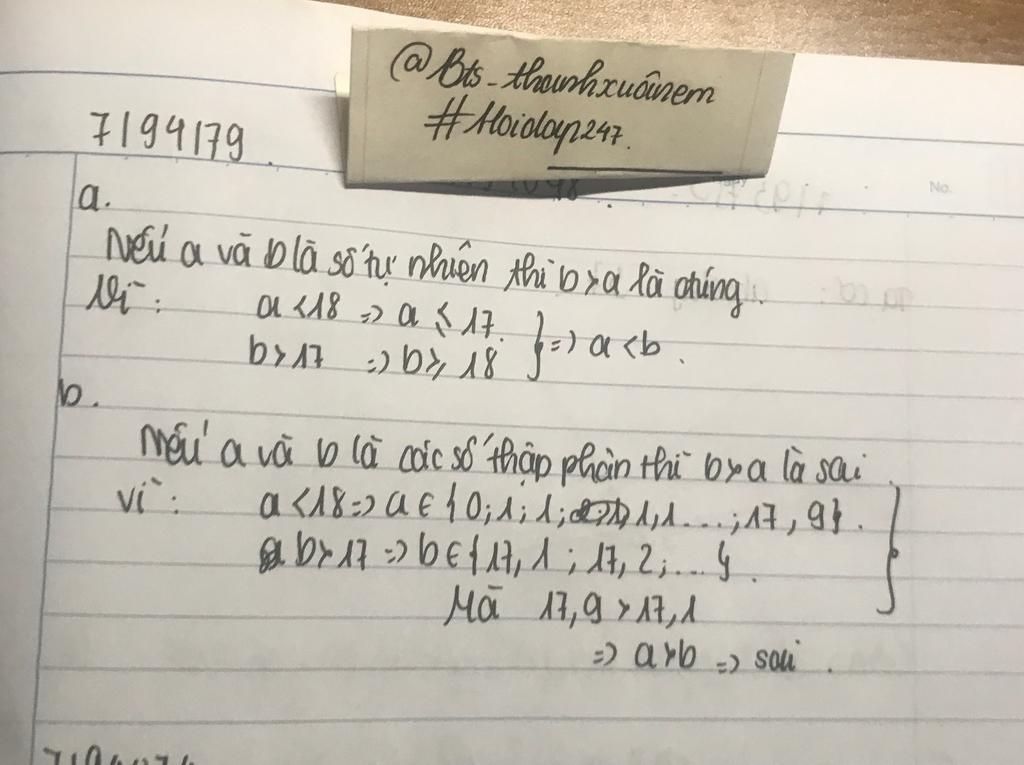 @Bts_thanhxuânem
#Hoidap247.
7194179.
No.
a.
Nếu a và b là số tự nhiên thì b>a là đúng.
Vì: a<18 => a ≤ 17.
b>17 => b ≥ 18 } => a<b.
b.
Nếu a và b là các số thập phân thì b>a là sai
vì: a<18 => a ∈ {0; 1; 1; 1,1 ...; 17,9}.
b>17 => b ∈ {17,1; 17,2; ...}.
Mà 17,9 > 17,1
=> a>b => sai.